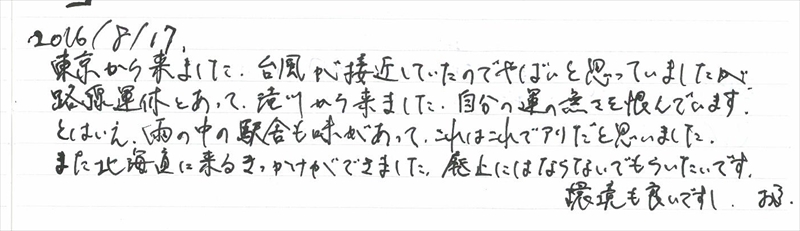 2016/8/17.
東京から来ました。台風が接近していたのでやばいと思っていましたが
路線運休とあって、滝川から来ました。自分の運の無さを恨んでいます。
とはいえ、雨の中の駅舎も味があって、これはこれでアリだと思いました。
また北海道に来るきっかけができました。廃止にはならないでもらいたいです。
環境も良いですし。